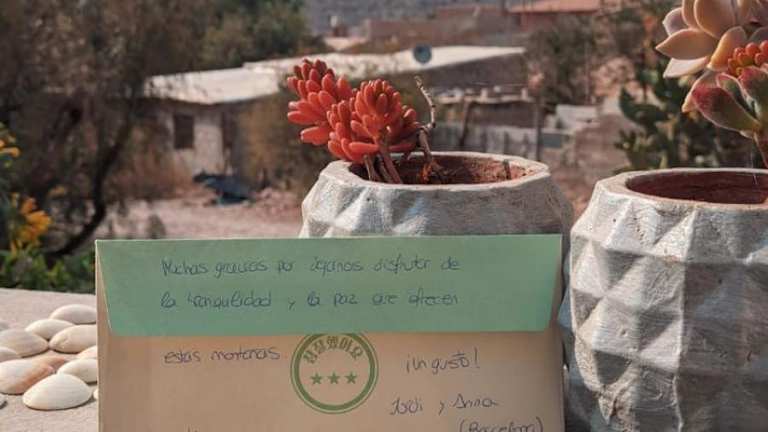 Muchas gracias por dejarnos disfrutar de
la tranquilidad y la paz que ofrecen
estas montañas. ¡Un gusto!
참 잘했어요
Jordi y Anna
(Barcelona)